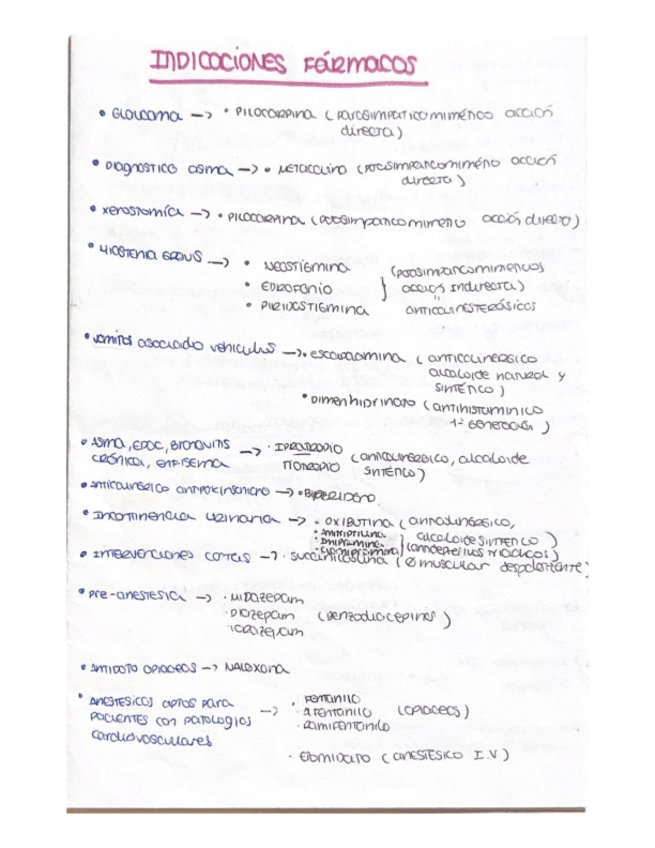 INDICACIONES FÁRMACOS
• GLAUCOMA → • PILOCARPINA (PARASIMPATICOMIMÉTICO ACCIÓN
directa)
• DIAGNOSTICO ASMA → • METACOLINA (PARASIMPATICOMIMÉTICO ACCIÓN
directa)
• XEROSTOMÍA → • PILOCARPINA (PARASIMPATICOMIMETICO acción directa)
• MIASTENIA GRAVIS → • NEOSTIGMINA (parasimpaticomimeticos
• EDROFONIO } acción Indirecta)
• PIRIDOSTIGMINA ANTICOLINESTERÁSICOS
• vómitos asociado vehículos → • escopolamina (anticolinérgico
alcaloide natural y
sintético)
• Dimenhidrinato (antihistamínico
1ª generación)
• ASMA, EPOC, BRONQUITIS → • IPRATROPIO (anticolinergico, alcaloide
CRÓNICA, ENFISEMA TIOTROPIO sintético)
• ANTICOLINERGICO ANTIPARKINSONIANO → • BIPERIDENO
• Incontinencia urinaria → • OXIBUTINA (anticolinérgico,
• AMITRIPTILINA alcaloide sintético)
• Imipramina } (antidepresivos triciclicos)
• Clomipramina
• INTERVENCIONES CORTAS → • succinilcolina (Ø muscular despolarizante)
• Pre-anestesia → • MIDAZEPAM
• DIAZEPAM (Benzodiacepinas)
• LORAZEPAM
• ANTIDOTO OPIACEOS → NALOXONA
• ANESTESICOS APTOS PARA → • FENTANILO
pacientes con patologías • ALFENTANILO (OPIACEOS)
cardiovasculares • RAMIFENTANILO
• ETOMIDATO (ANESTÉSICO I.V)